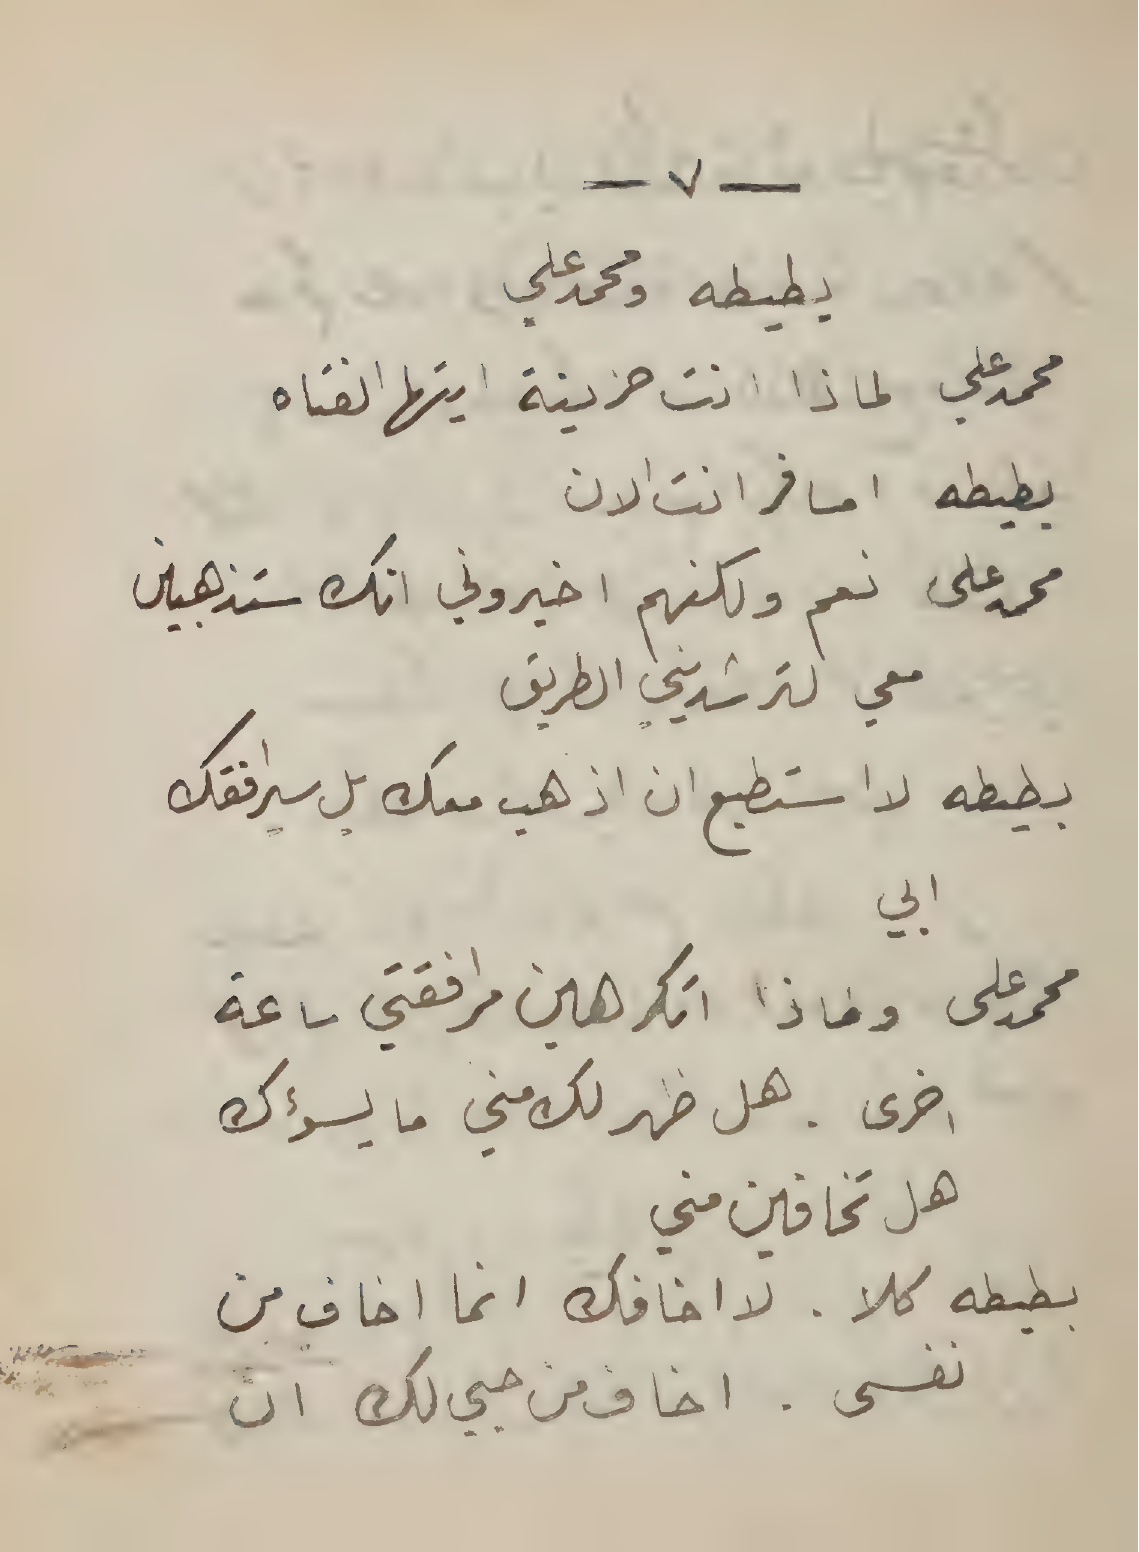 — ٧ —
بطيطه ومحمد علي
محمد علي لماذا انت حزينة ايتها الفتاه
بطيطه امسافر انت الان
محمد على نعم ولكنهم اخبروني انك ستذهبين
معي لترشديني الطريق
بطيطه لا استطيع ان اذهب معك بل سيرافقك
ابي
محمد على ولماذا اتكرهين مرافقتي ساعة
اخرى . هل ظهر لك مني ما يسوءك
هل تخافين مني
بطيطه كلا . لا اخافك انما اخاف من
نفسى . اخاف من حبي لك ان